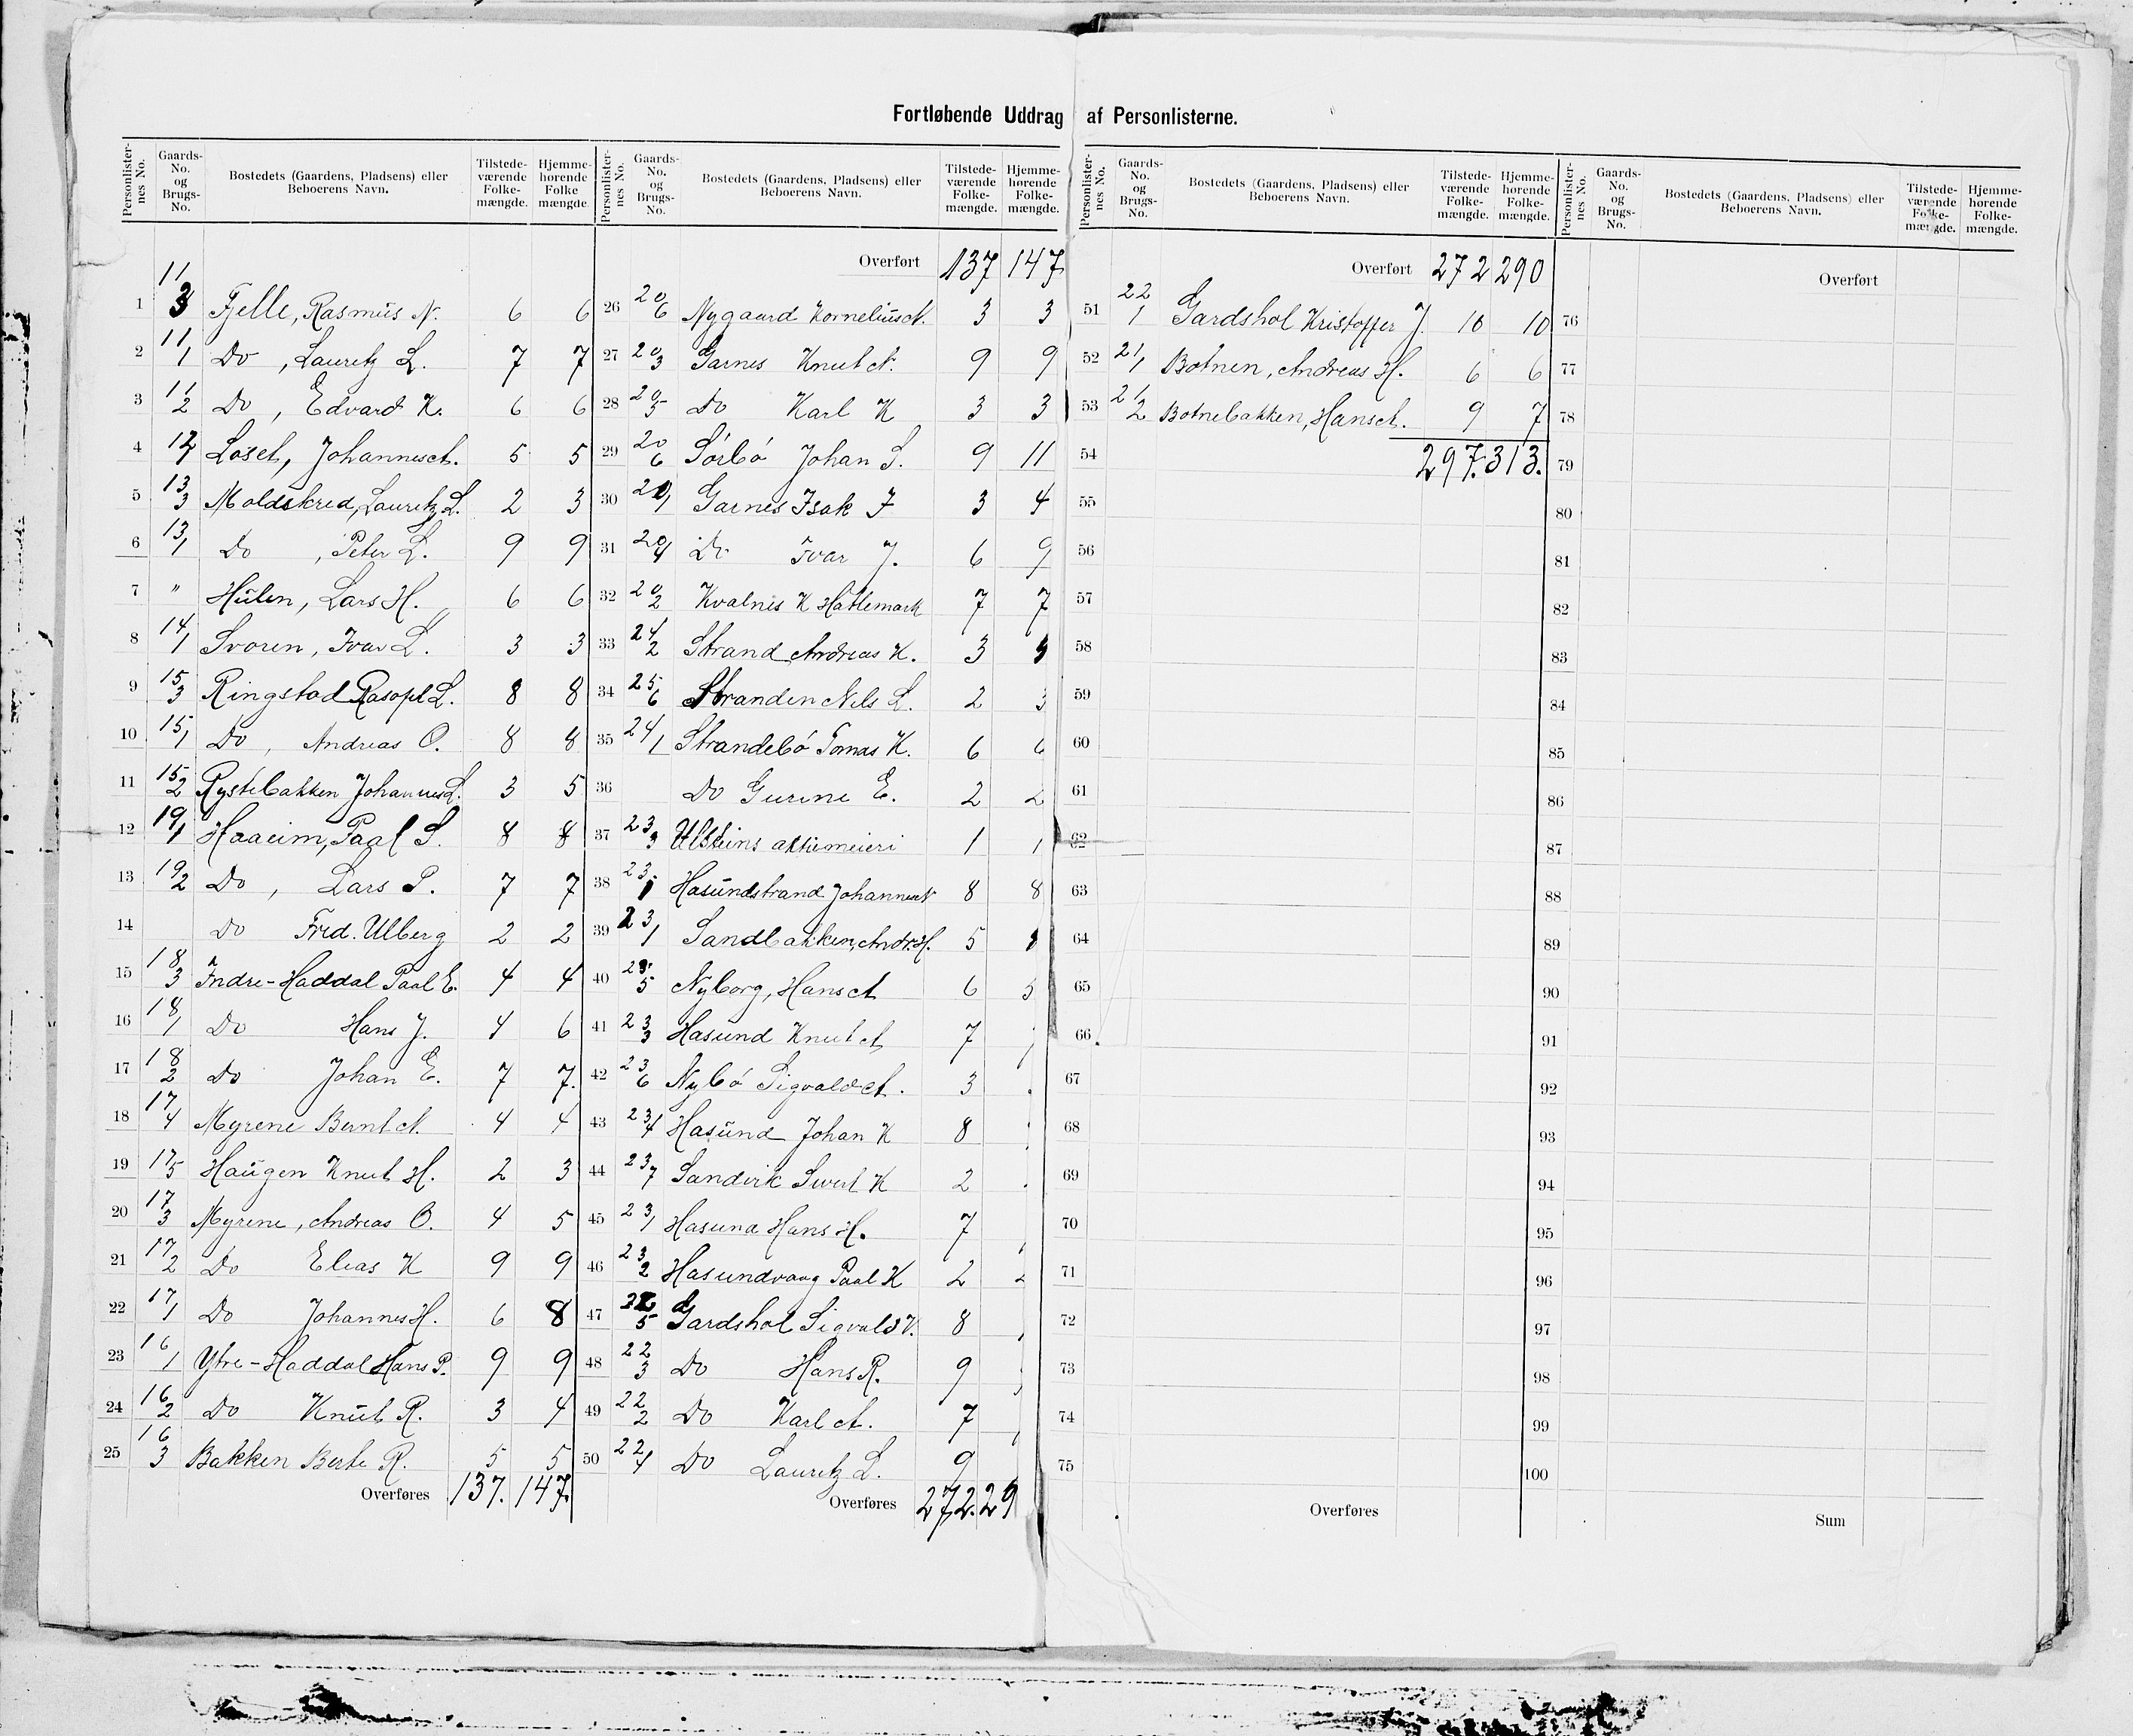 Fortløbende Uddrag af Personlisterne.
Personlisternes No. Gaards-No. og Brugs-No. Bostedets (Gaardens, Pladsens) eller Beboerens Navn. Tilstedeværende Folkemængde. Hjemmehørende Folkemængde
1 11/3 Fjelle, Rasmus N. 6 6
2 11/1 Do, Lauretz L. 7 7
3 11/2 Do, Edvard K. 6 6
4 Løset, Johannes A. 5 5
5 13/3 Moldskred, Lauretz L. 2 3
6 13/1 Do, Peter L. 9 9
7 " Hülen, Lars H. 6 6
8 14/1 Svoren, Ivar L. 3 3
9 15/3 Ringstad Rasop L. 8 8
10 15/1 Do, Andreas O. 8 8
11 15/2 Rystebakken Johannes L. 3 5
12 19/1 Haaeim, Paal S. 8 8
13 19/2 Do, Lars P. 7 7
14 Do Fred. Ulberg 2 2
15 18/3 Indre-Haddal Paal E. 4 4
16 18/1 Do Hans J. 4 6
17 18/2 Do Johan E. 7 7.
18 17/4 Myrene Bernt A. 4 4
19 17/5 Haugen Knut H. 2 3
20 17/3 Myrene, Andreas O. 4 5
21 17/2 Do Elias K 9 9
22 17/1 Do Johannes H. 6 8
23 16/1 Ytre-Haddal Hans P. 9 9
24 16/2 Do Knut R. 3 4
25 16/3 Bakken Berte R. 5 5
Overføres 137. 147.
Personlisternes No. Gaards-No. og Brugs-No. Bostedets (Gaardens, Pladsens) eller Beboerens Navn. Tilstedeværende Folkemængde. Hjemmehørende Folkemængde.
Overført 137 147
26 20/6 Nygaard Kornelius A. 3 3
27 20/3 Garnes Knut A. 9 9
28 20/5 Do Karl K 3 3
29 20/6 Sørbø Johan S. 9 11
30 20/1 Garnes Isak J 3 4
31 20/4 Do Ivar J. 6 9
32 20/2 Kvalnes K Hatlemark 7 7
33 24/2 Strand Andreas K. 3
34 25/6 Stranden Nils L. 2 3
35 24/1 Strandebø Tomas K. 6 6
36 Do Gurine E. 2 2
37 23/3 Ulsteins aktiemeieri 1 1
38 23/1 Hasundstrand Johannes 8 8
39 23/1 Sandbakken, Andr. H. 5
40 23/5 Nyborg, Hans A 6 5
41 23/3 Hasund Knut A 7
42 23/6 Nybø Sigvald A. 3
43 23/4 Hasund Johan K 8
44 23/7 Sandvik Sivert K 2
45 23/1 Hasund Hans H. 7
46 23/2 Hasundvaag Paal K 2 2
47 22/5 Gardshol Sigvald K. 8
48 22/3 Do Hans R. 9
49 22/2 Do Karl A. 7
50 22/4 Do Lauretz L. 9
Overføres 272. 29
Personlisternes No. Gaards-No. og Brugs-No. Bostedets (Gaardens, Pladsens) eller Beboerens Navn. Tilstedeværende Folkemængde. Hjemmehørende Folkemængde.
Overført 272 290
51 22/1 Gardshol Kristoffer J. 10 10
52 21/1 Botnen, Andreas H. 6 6
53 21/2 Botnebakken, Hans A. 9 7
54 297. 313.
55
56
57
58
59
60
61
62
63
64
65
66
67
68
69
70
71
72
73
74
75
Overføres
Personlisternes No. Gaards-No. og Brugs-No. Bostedets (Gaardens, Pladsens) eller Beboerens Navn. Tilstedeværende Folkemængde. Hjemmehørende Folkemængde.
Overført
76
77
78
79
80
81
82
83
84
85
86
87
88
89
90
91
92
93
94
95
96
97
98
99
100
Sum